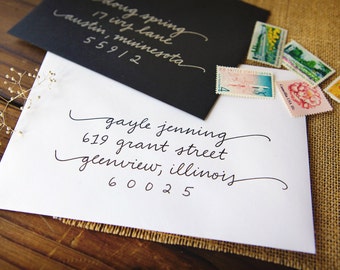 doug spring
17 ivy lane
austin, minnesota
55912
gayle jenning
619 grant street
glenview, illinois
60025